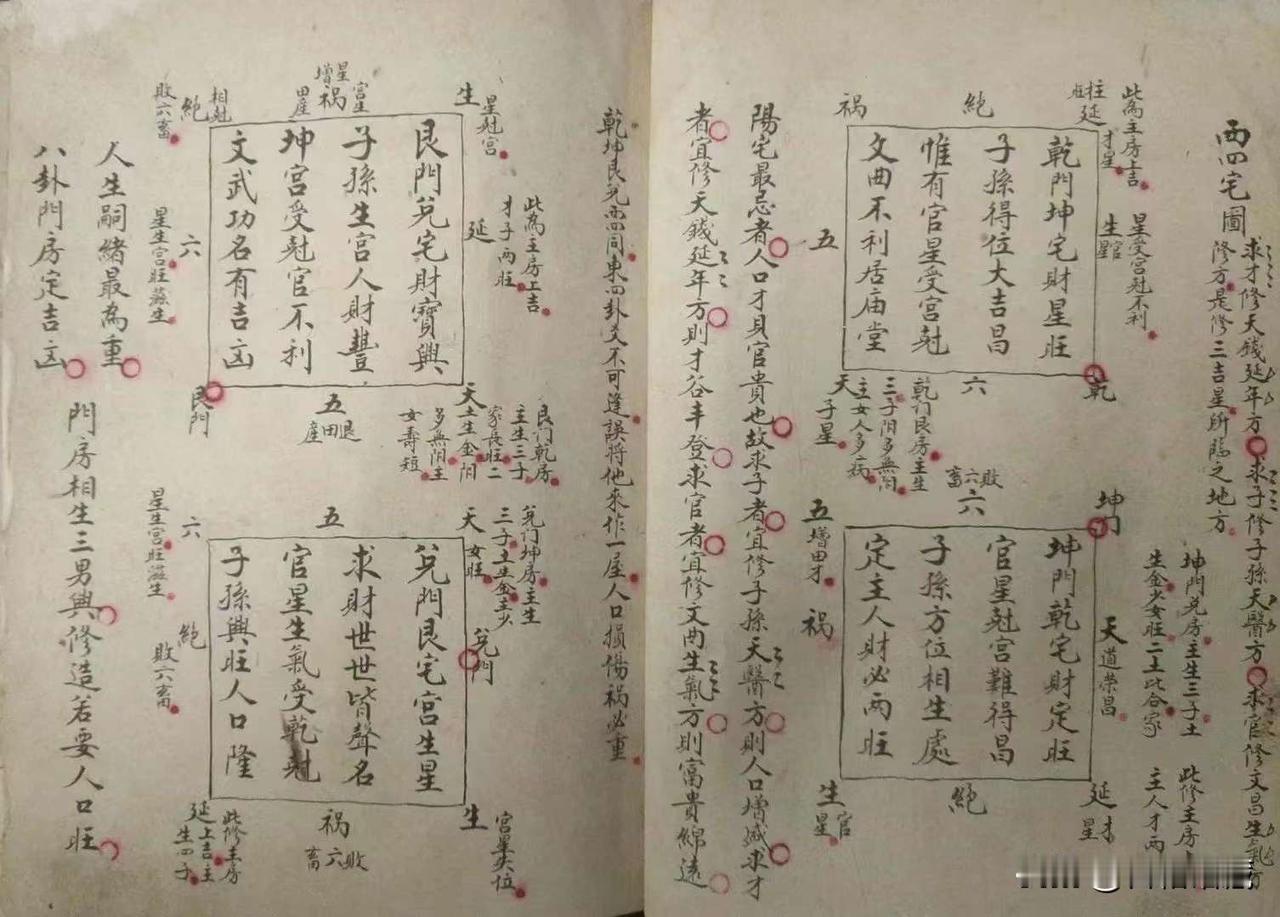 西四宅圖
求才修天錢延年方求子修子孫天醫方求官修文昌生氣方
修方是修三吉星所臨之地方
此為主房吉
柱延
旺
才星
星受宮尅不利
生官
星
絶
祸
乾門坤宅財星旺
子孫得位大吉昌
惟有官星受宮尅
文曲不利居庙堂
五
乾
六
乾门艮房主生
三子阳多無阴
主女人多病
天
子星
敗六畜
六
坤门
坤門兑房主生三子土
生金少女旺二土比合家
天道荣昌
此修主房上
主人才两
坤門乾宅財定旺
官星尅宮難得昌
子孫方位相生處
定主人財必两旺
五增田才
祸
生官
星
絶
延才
星
陽宅最忌者人口才貝官貴也故求子者宜修子孫天醫方則人口增減求才
者宜修天錢延年方則才谷丰登求官者宜修文曲生氣方則富貴綿遠
乾坤艮兑西同東四卦爻不可逢誤將他來作一屋人口損傷祸必重
生
星尅宮
此為主房上吉
延
才子两旺
增星
祸
宮生
田產
相尅
絶
敗六畜
艮門兑宅財寶興
子孫生宮人財豐
坤宮受尅官不利
文武功名有吉凶
六
星生宮旺滋生
艮門
五
退田產
天
艮门乾房
主生三子
家長旺二
土生金阳
多無阴主
女壽短
五
天
兑门坤房主生
三子土生金主少
女旺
兑門
兑門艮宅宮生星
求財世世皆聲名
官星生氣受乾尅
子孫興旺人口隆
六
星生宮旺滋生
絶
敗六畜
生
宮星失位
祸
敗六畜
此修主房
延上吉主
生四子
人生嗣緒最為重
八卦門房定吉凶
門房相生三男興修造若要人口旺